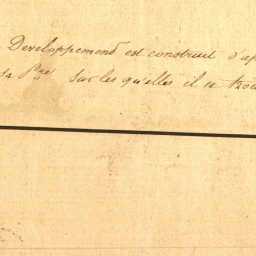 Developpement est construit d'ap
sur les qu'elles il se trou